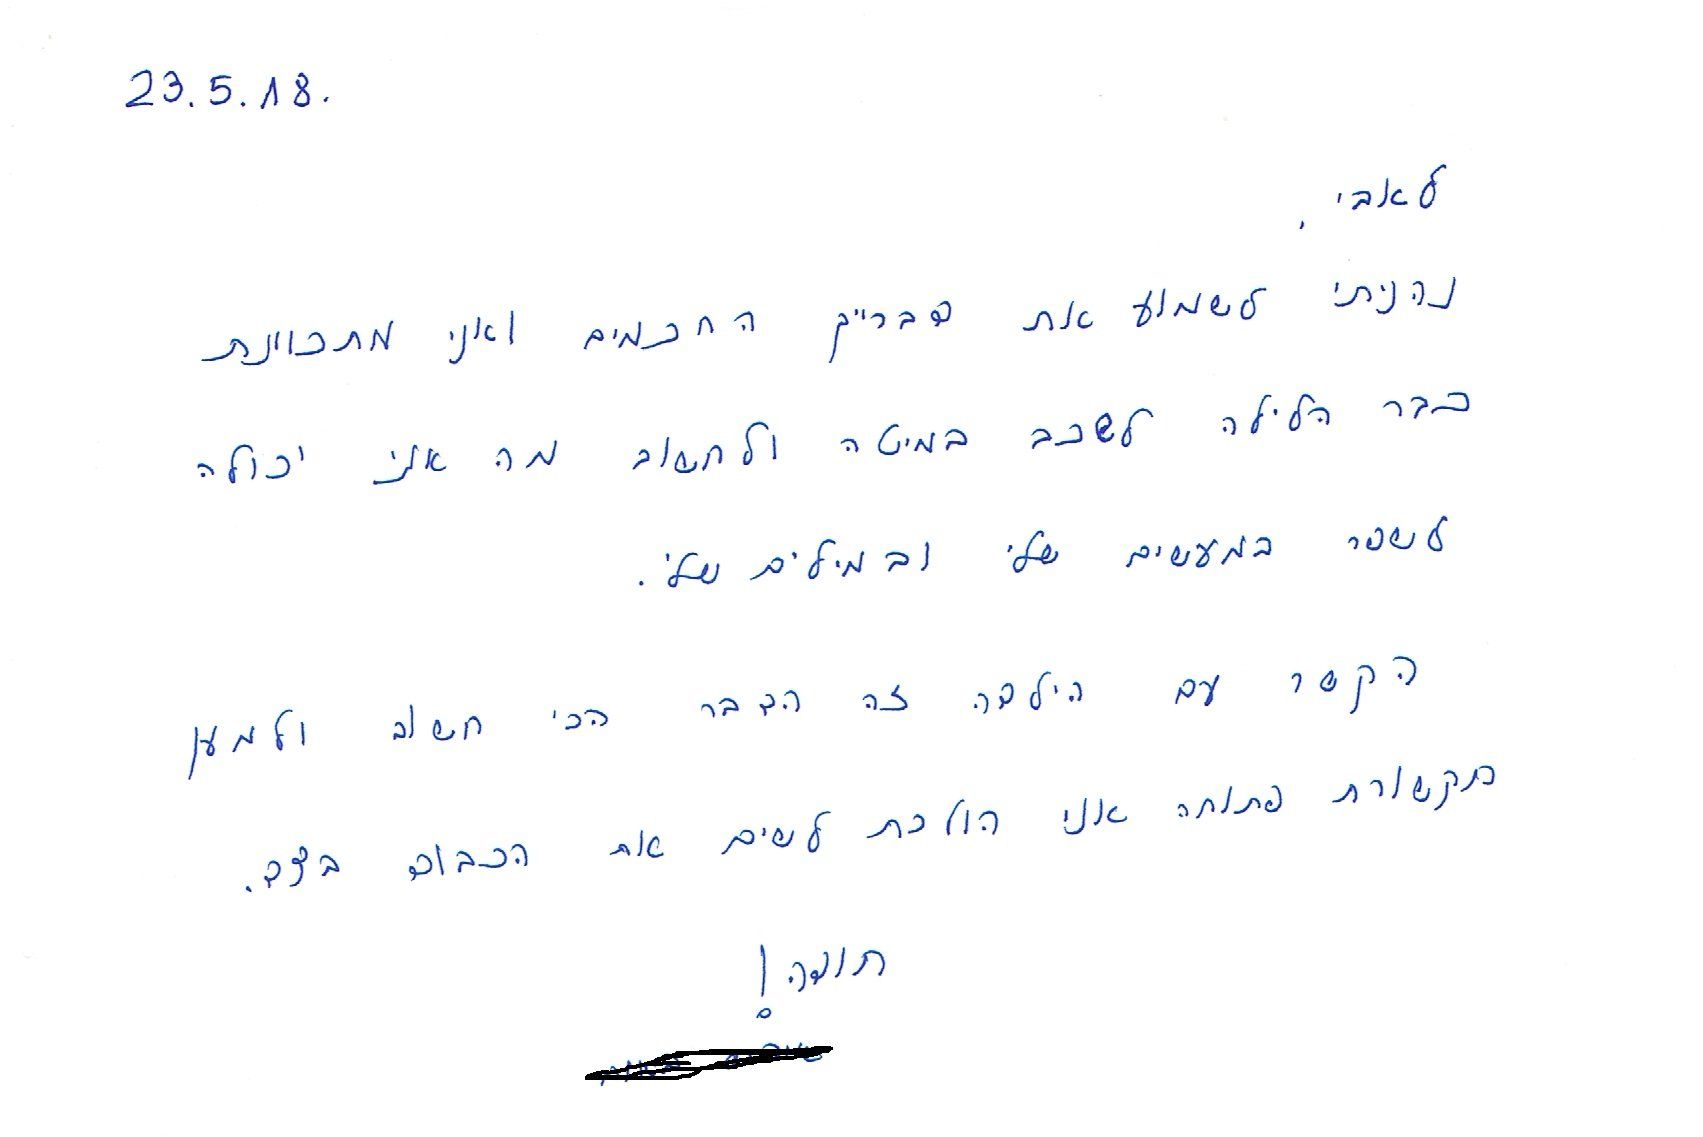 23.5.18.
לאבי,
נהניתי לשמוע את דברייך החכמים ואני מתכוונת
כבר הלילה לשכב במיטה ולחשוב מה אני יכולה
לשפר במעשים שלי ובמילים שלי.
הקשר עם הילדה זה הדבר הכי חשוב ולמען
תקשורת פתוחה אני הולכת לשים את הכבוד בצד.
תודה!